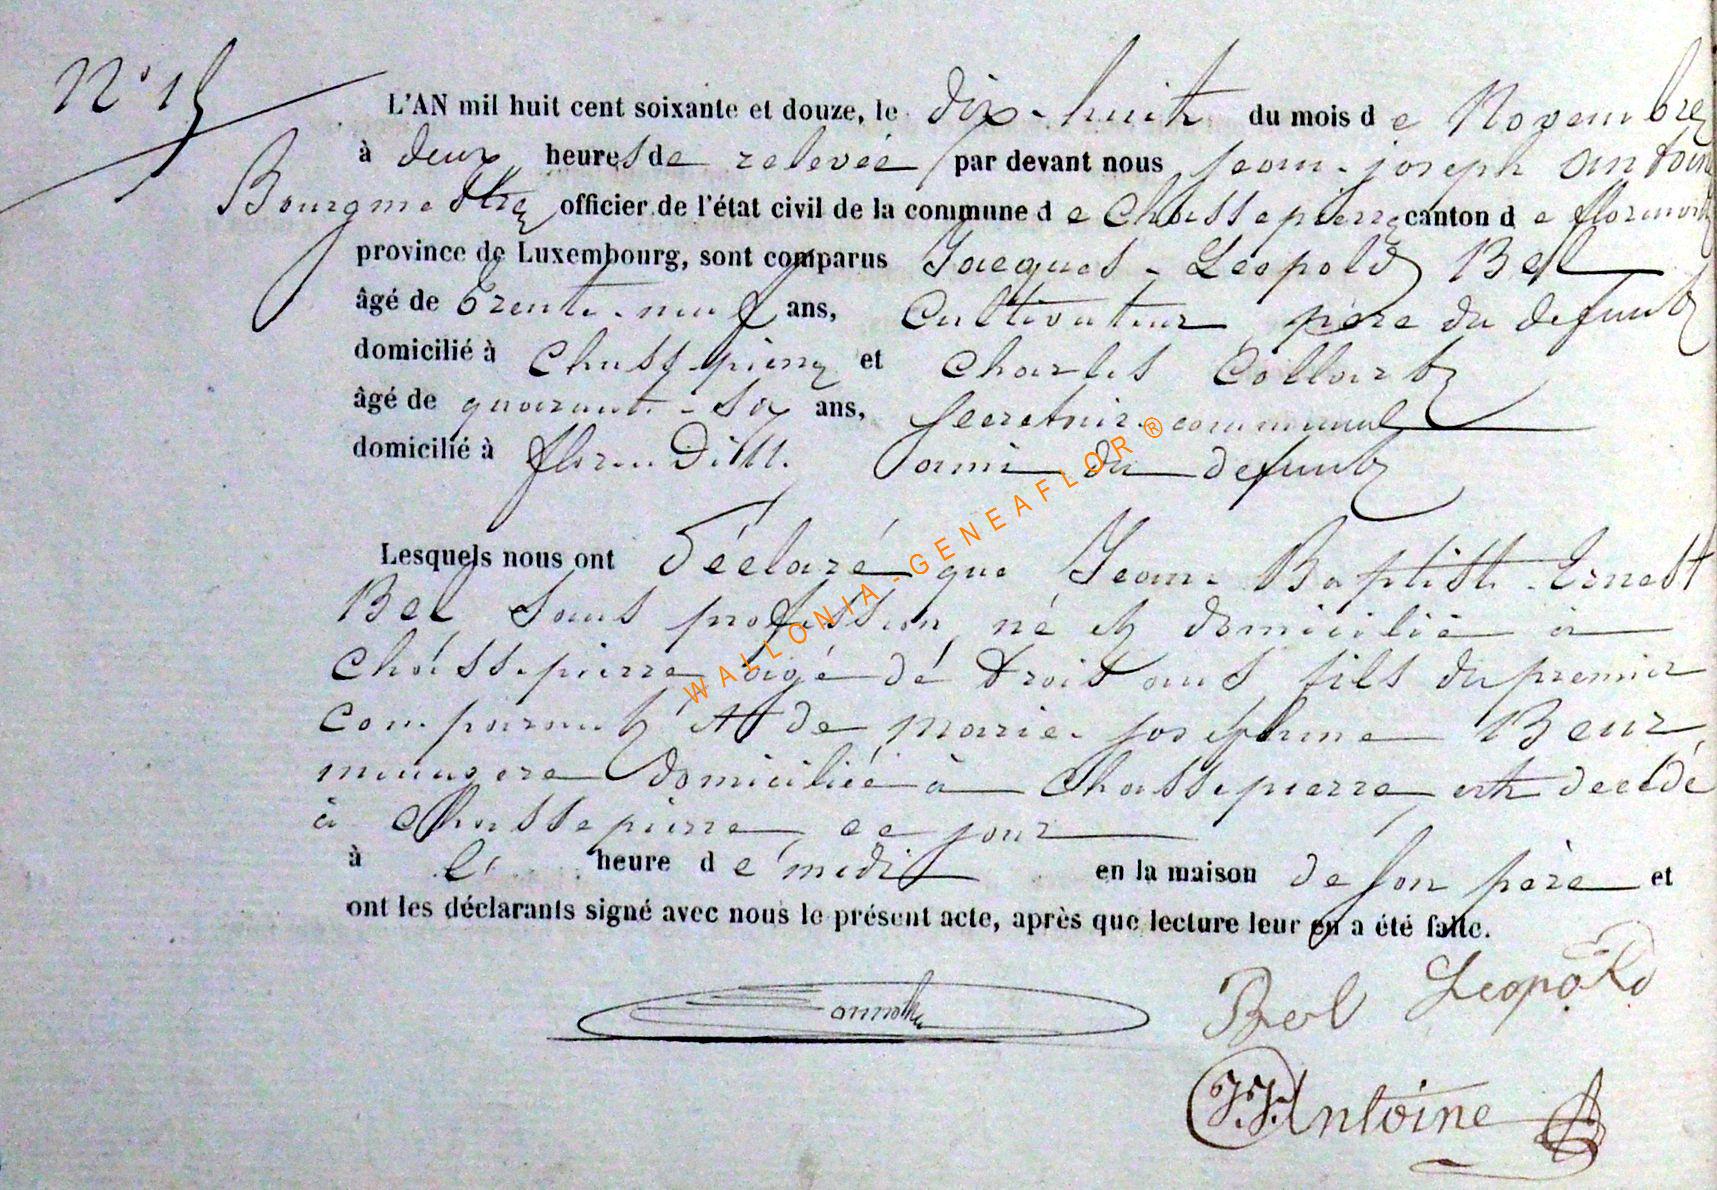 N° 15
L'AN mil huit cent soixante et douze, le dix-huit du mois de Novembre
à deux heures de relevée par devant nous Jean-joseph antoine
Bourgmestre officier de l'état civil de la commune de Chassepierre canton de florenville
province de Luxembourg, sont comparus Jacques-Léopold Bel
âgé de trente-neuf ans, Cultivateur, père du defunt
domicilié à Chassepierre et Charles Collart
âgé de quarante-six ans, secretaire communal
domicilié à florenville. ami du defunt
Lesquels nous ont déclaré que Jean-Baptiste-Ernest
Bel sans profession, né et domicilié à
Chassepierre âgé de trois ans, fils du premier
comparant et de marie-josephine Beur
menagere domiciliée à Chassepierre, est decedé
à Chassepierre, ce jour
à heure de midi en la maison de son père et
ont les déclarants signé avec nous le présent acte, après que lecture leur en a été faite.
Bel Leopold
J.J. Antoine
WALLONIA-GENEAFLOR®